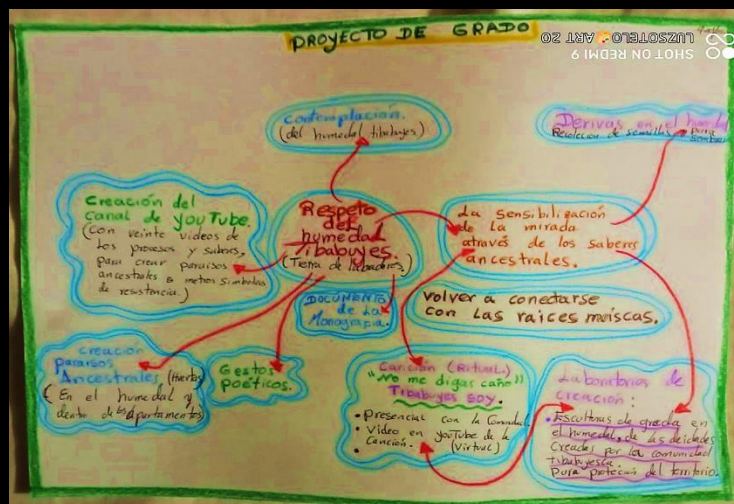 PROYECTO DE GRADO
SHOT ON REDMI 9
LUZSOTELO ART 20
Contemplación.
(del humedal tibabuyes)
Derivas en el humedal
Recolección de semillas para
sembrar
Creación del
canal de YouTube.
(Con veinte videos de
los procesos y saberes,
para crear paraisos
ancestrales o metros simbolos
de resistencia.)
Respeto
del
humedal
Tibabuyes.
(Tierra de labradores.)
La sensibilización
de la mirada
através de los saberes
ancestrales.
DOCUMENTO
de La
Monografia.
volver a conectarse
con Las raices muiscas.
Creación
paraisos
Ancestrales (Hierbas)
(En el humedal y
dentro de los apartamentos
Gestos
poéticos.
Canción (Ritual)
"No me digas caño"
Tibabuyes soy.
• Presencial con la Comunidad.
• Video en YouTube de la
Canción. (Virtual)
Laboratorios de
creación:
• Esculturas de greda en
el humedal, de las deidades
Creadas por la comunidad
tibabuyesca.
para protección del territorio.